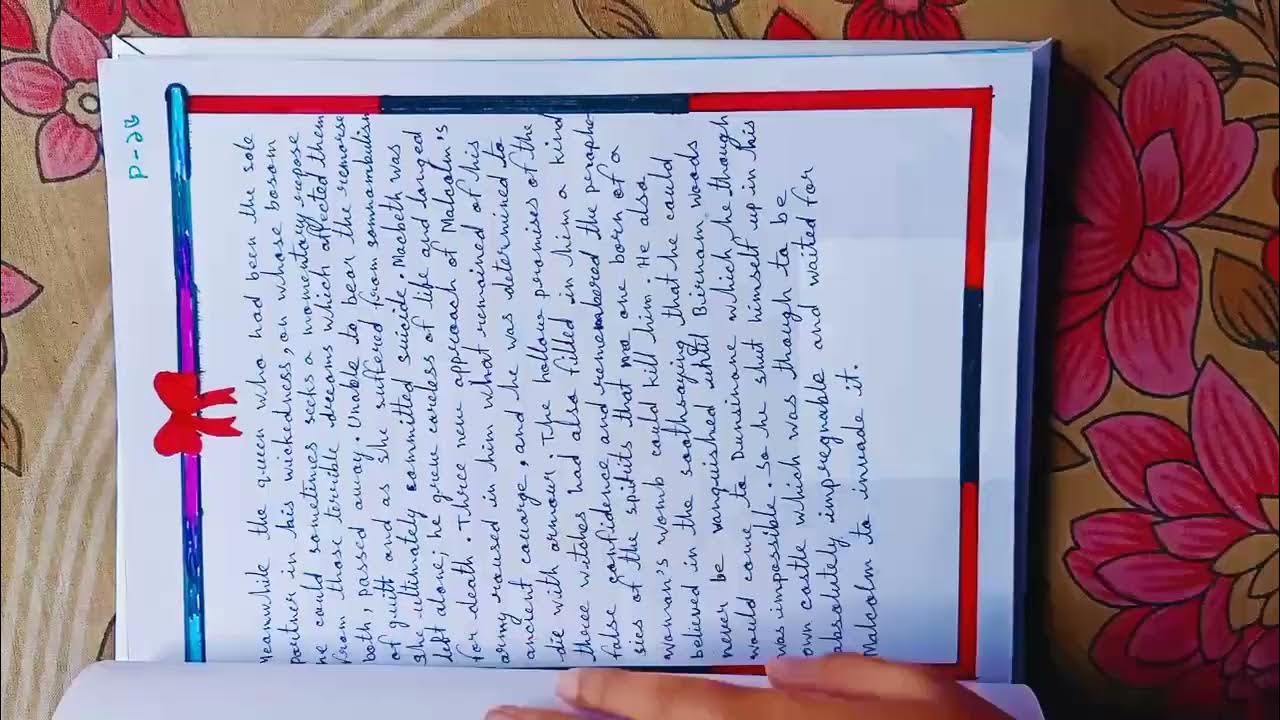 P-28
Meanwhile the queen who had been the sole
partner in his wickedness, on whose bosom
he could sometimes seeks a momentary repose
from those terrible dreams which affected them
both, passed away. Unable to bear the remorse
of guilt and as she suffered from somnambulism
she ultimately committed suicide. Macbeth was
left alone; he grew careless of life and longed
for death. Three new approach of Malcolm's
army roused in him what remained of his
ancient courage, and he was determined to
die with armour. The hollow promises of the
three witches had also filled in him a kind
false confidence and remembered the prophe
sies of the spirits that no one born of a
woman's womb could kill him. He also
believed in the soothsaying that he could
never be vanquished until Birnam woods
would come to Dunsinane which he though
was impossible. So he shut himself up in his
own castle which was though to be
absolutely impregnable and waited for
Malcolm to invade it.